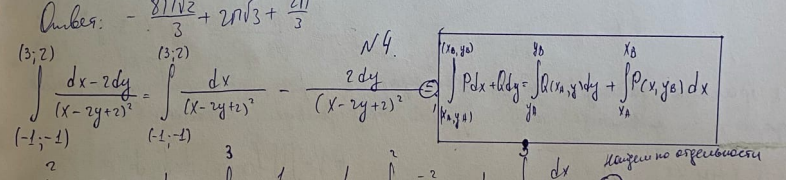 Ответ: - 8π√2/3 + 2π√3 + 2π/3
N4.
∫_{(-1;-1)}^{(3;2)} (dx-2dy)/(x-2y+2)² = ∫_{(-1;-1)}^{(3;2)} dx/(x-2y+2)² - 2dy/(x-2y+2)² = ∫_{(x_A,y_A)}^{(x_B,y_B)} Pdx+Qdy = ∫_{y_A}^{y_B} Q(x_A,y)dy + ∫_{x_A}^{x_B} P(x,y_B)dx
Найдем по отдельности
2 3 2 -2 3 dx